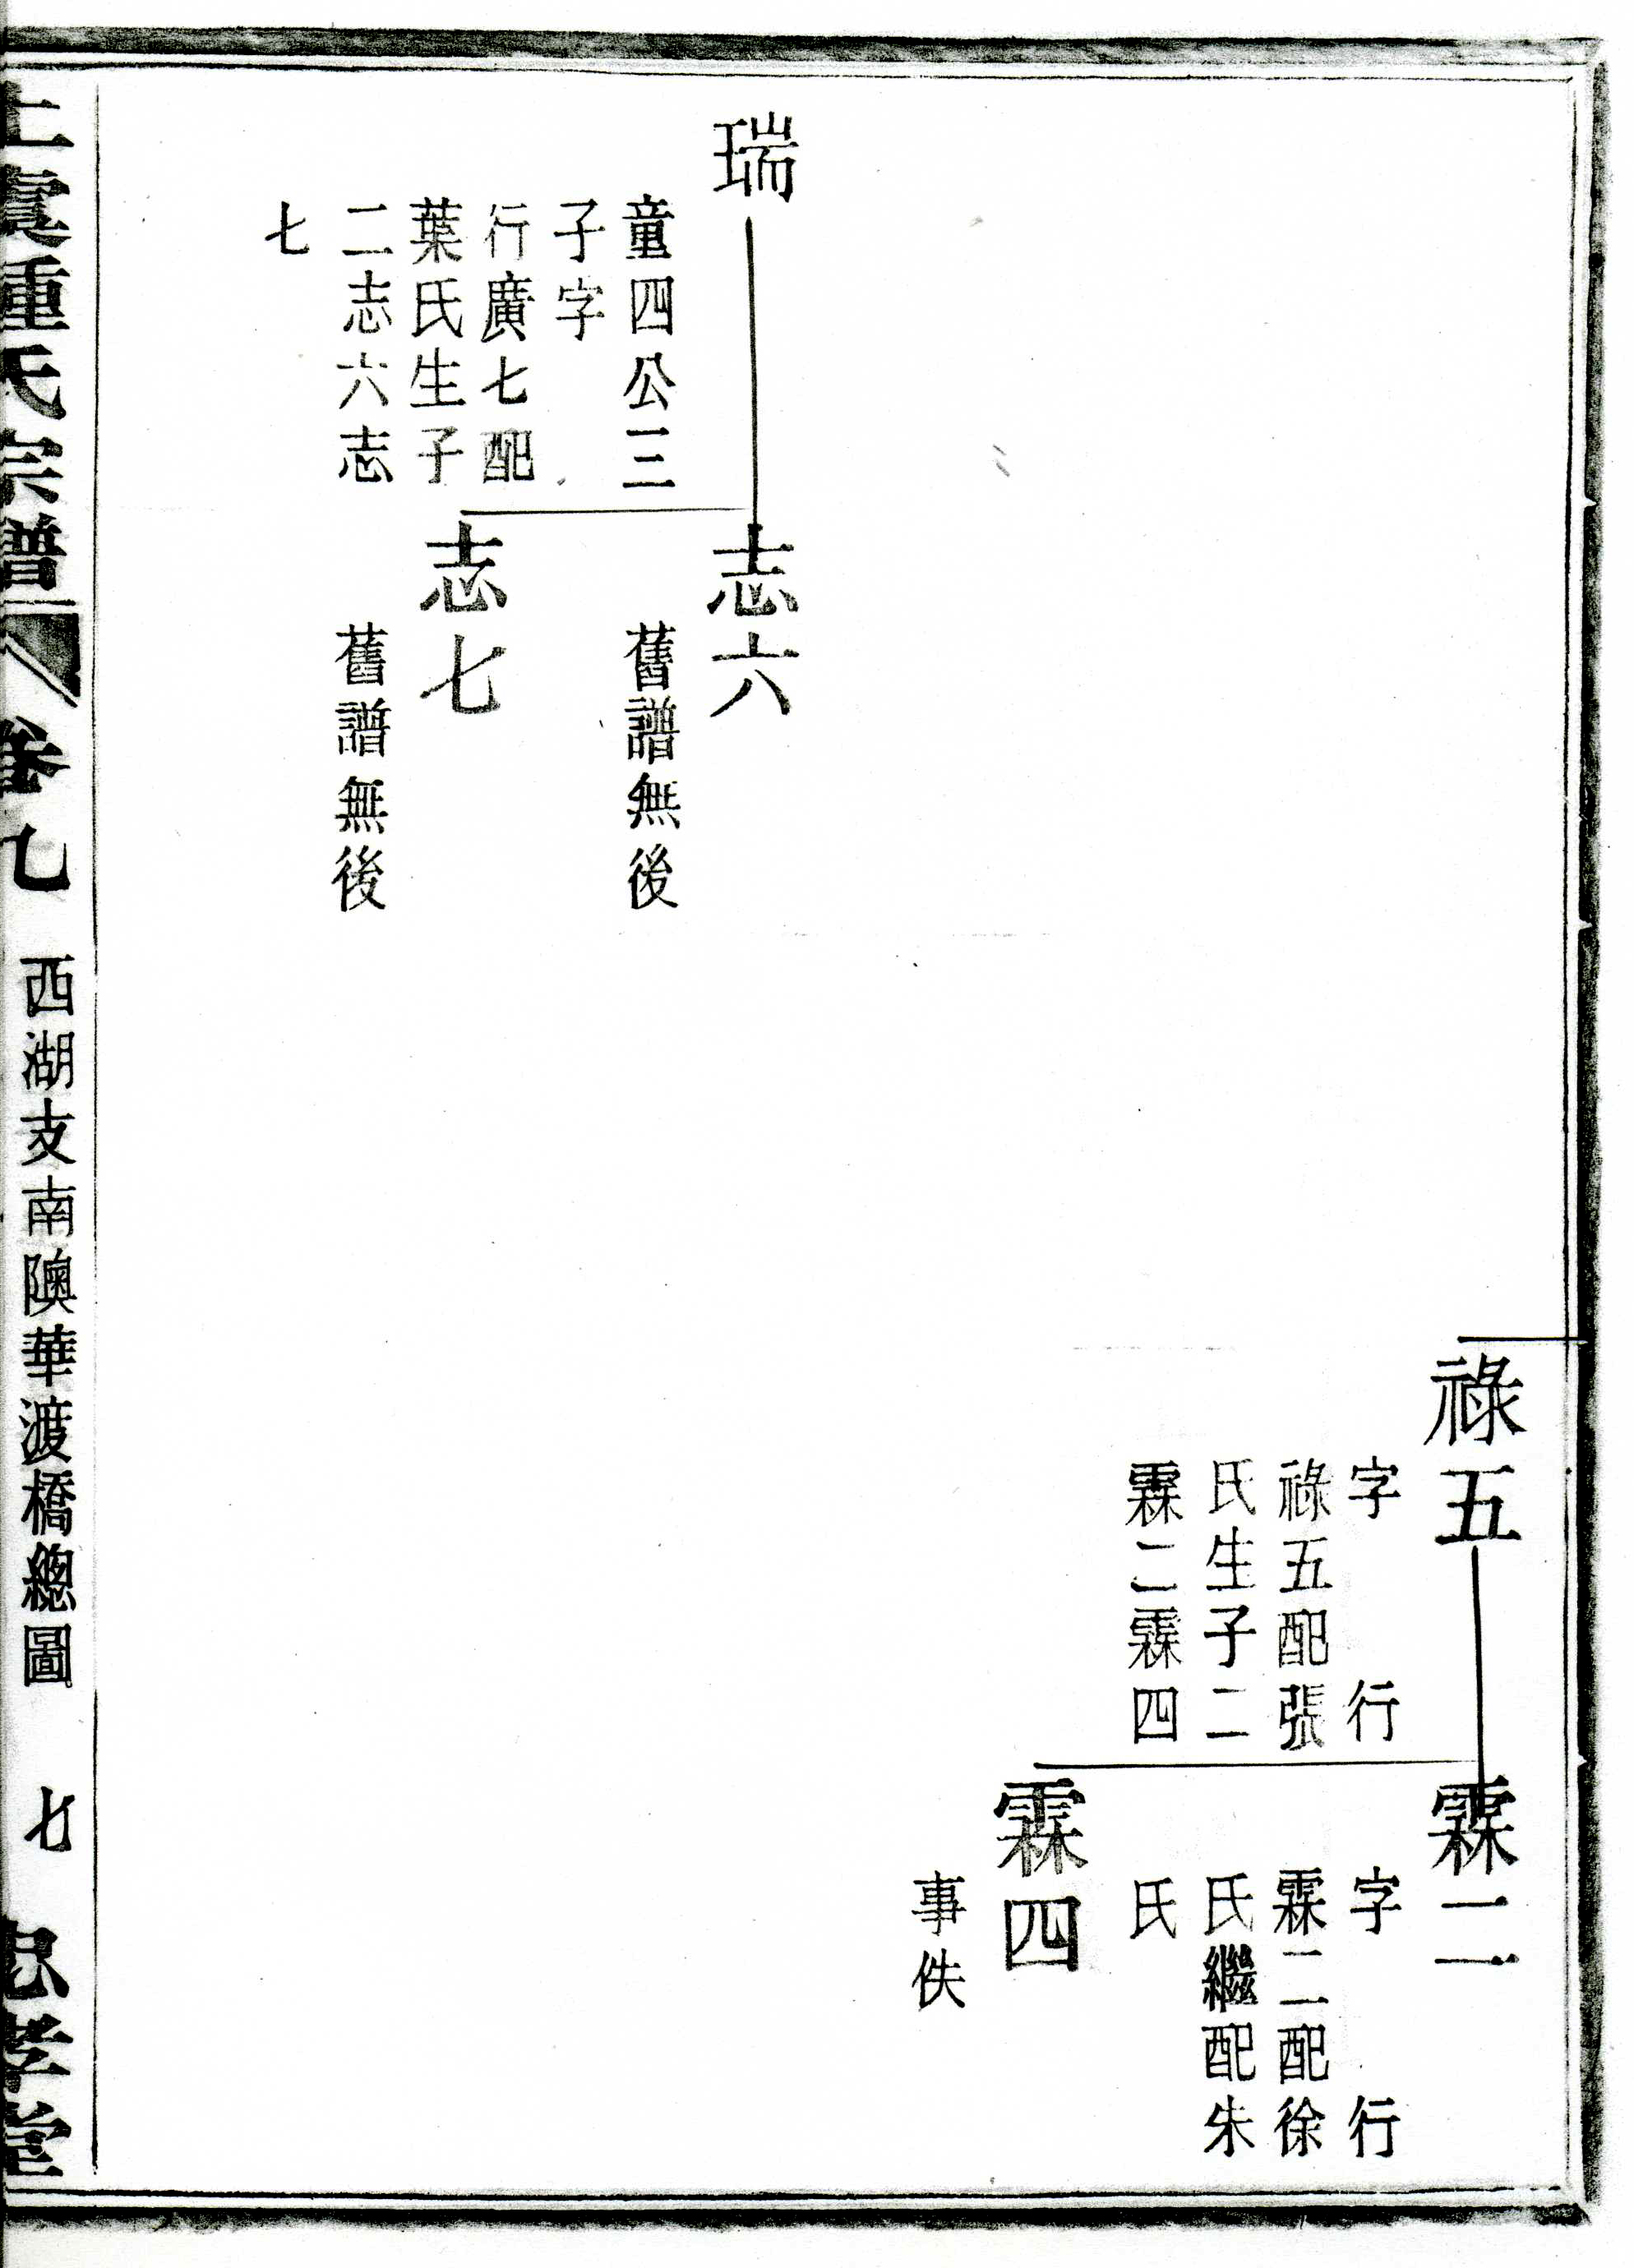 祿五
字　行
祿五配張
氏生子二
霖二霖四
霖二
字　行
霖二配徐
氏繼配朱
氏
霖四
事佚
瑞
童四公三
子字
行廣七配
葉氏生子
二志六志
七
志六
舊譜無後
志七
舊譜無後
上虞鍾氏宗譜 卷七 西湖支南隩華渡橋總圖 七 忠孝堂